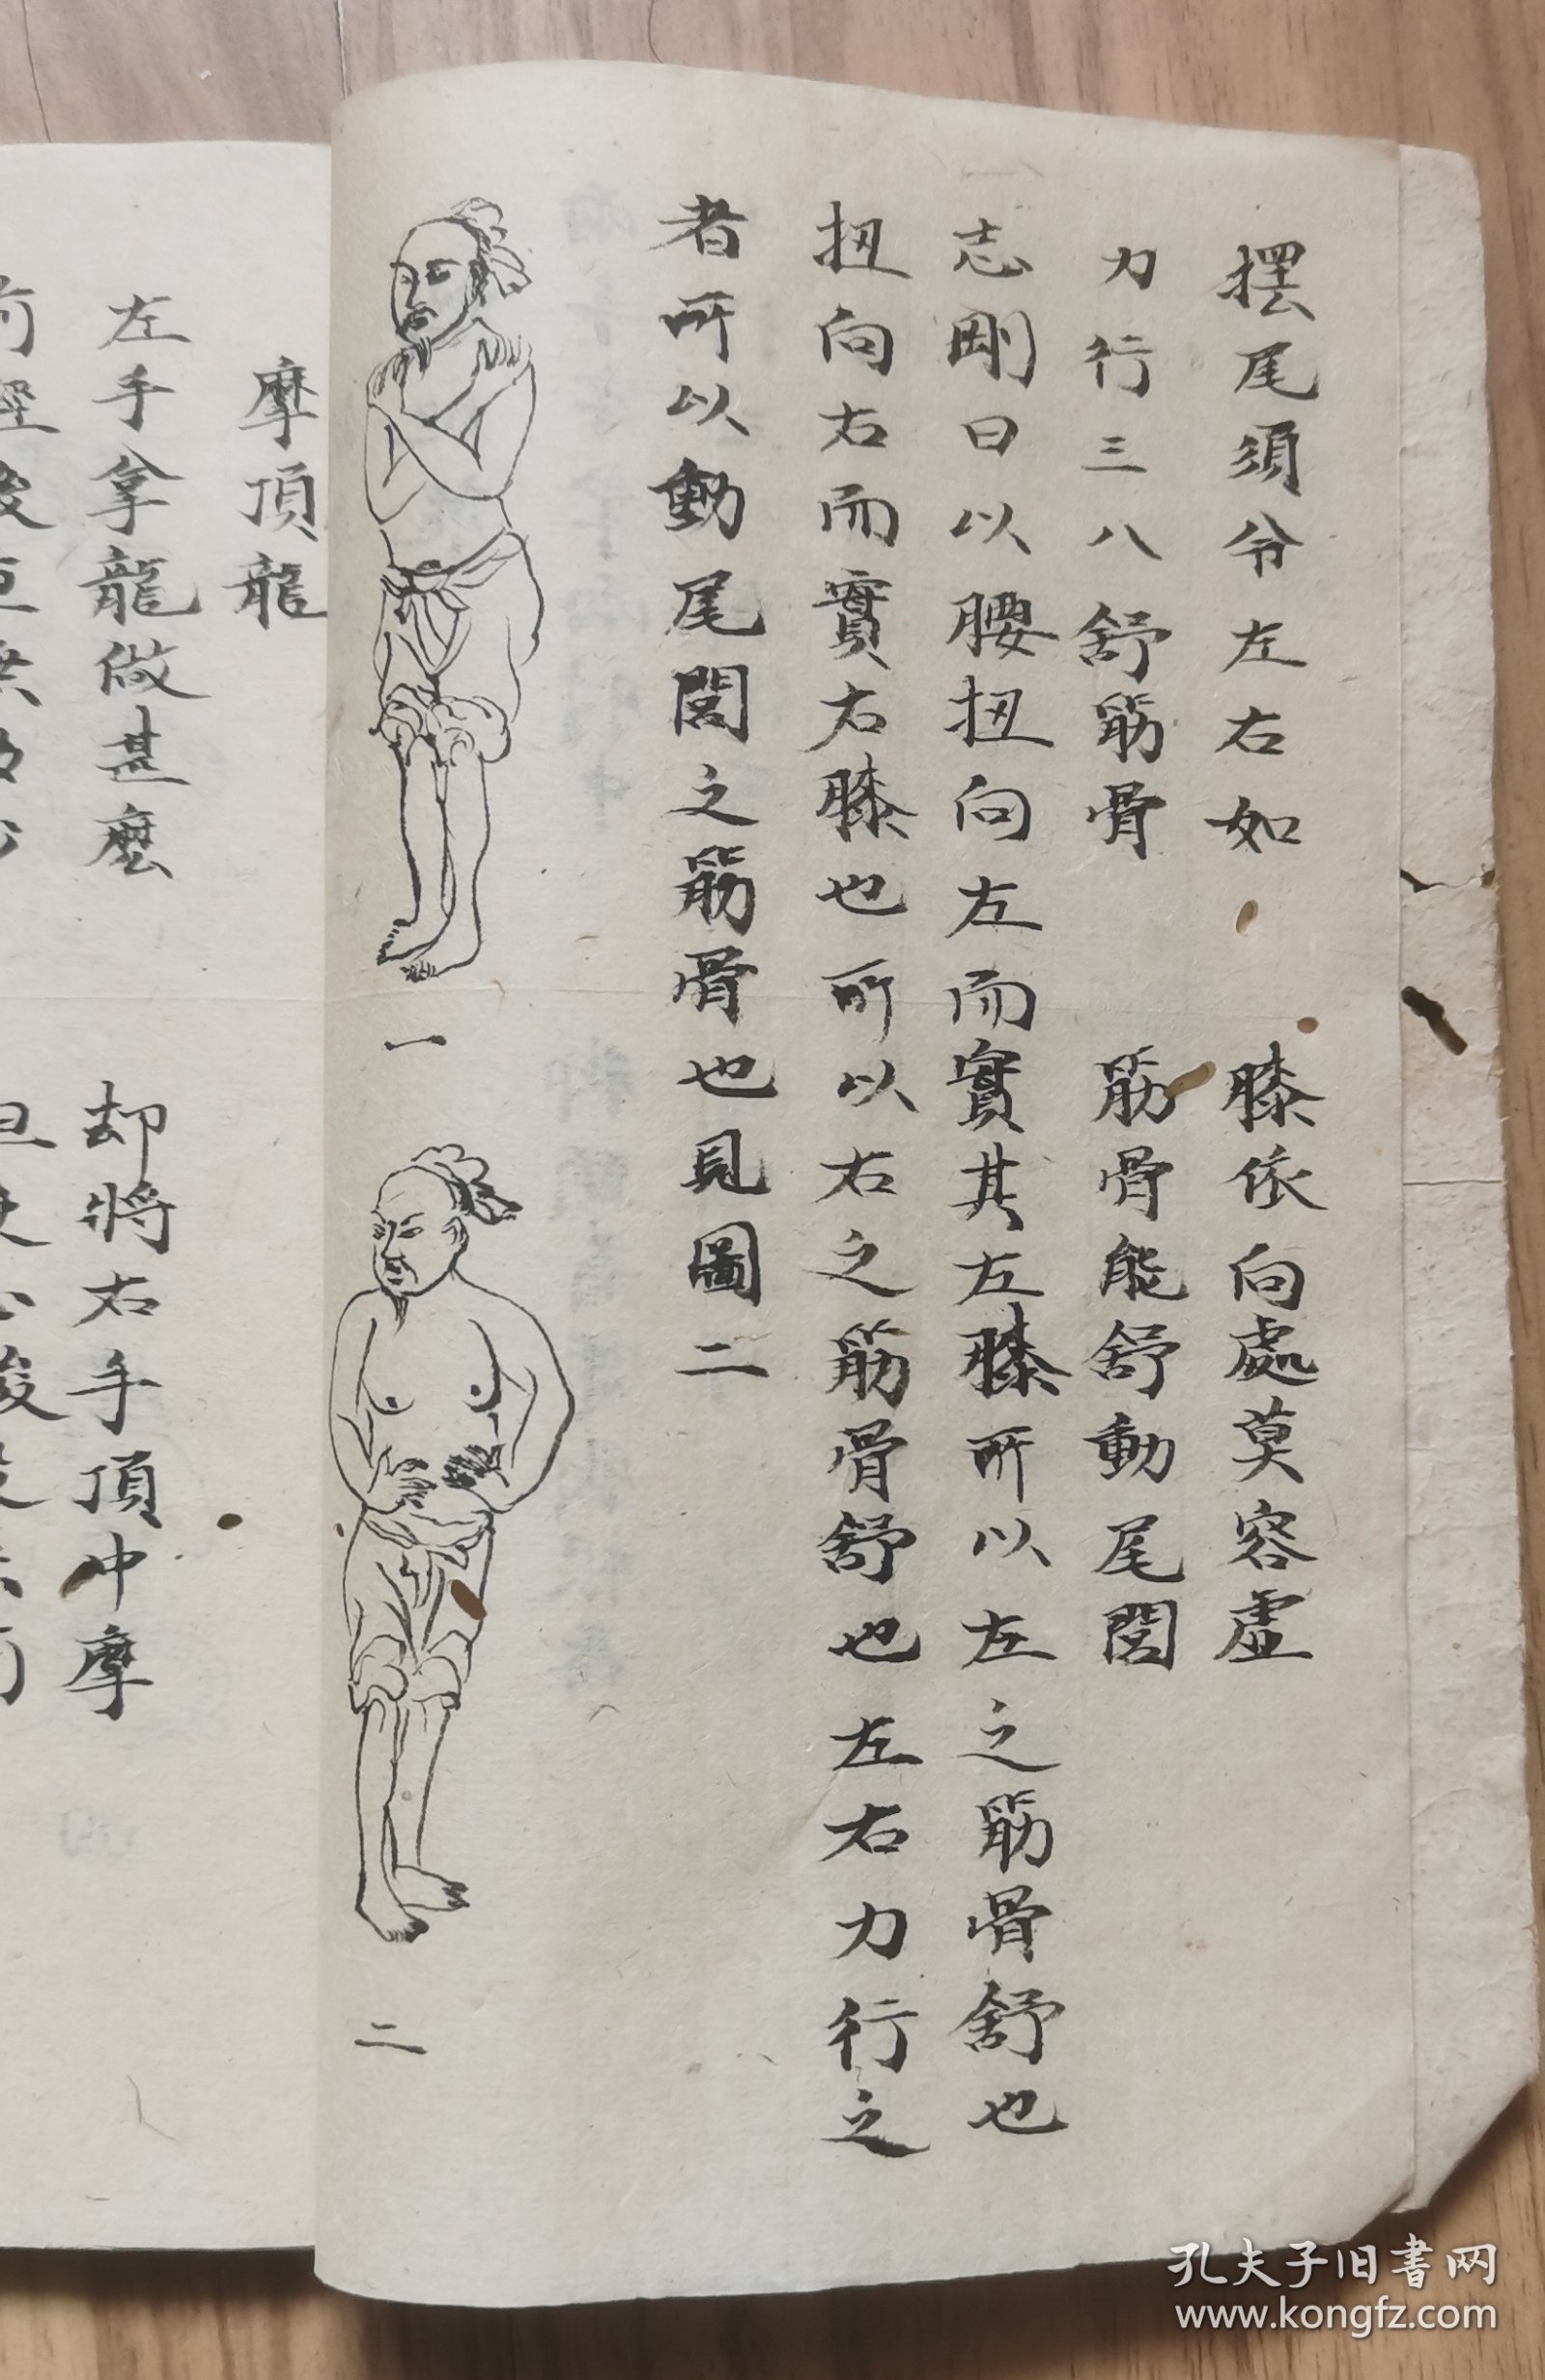 摆尾須令左右如 膝依向處莫容虛
力行三八舒筋骨 筋骨能舒動尾閭
志剛曰以腰扭向左而實其左膝所以左之筋骨舒也
扭向右而實右膝也所以右之筋骨舒也左右力行之
者所以動尾閭之筋骨也見圖二
一
二
摩頂龍
左手拿龍做甚麽 却將右手頂中摩
孔夫子旧書网
www.kongfz.com